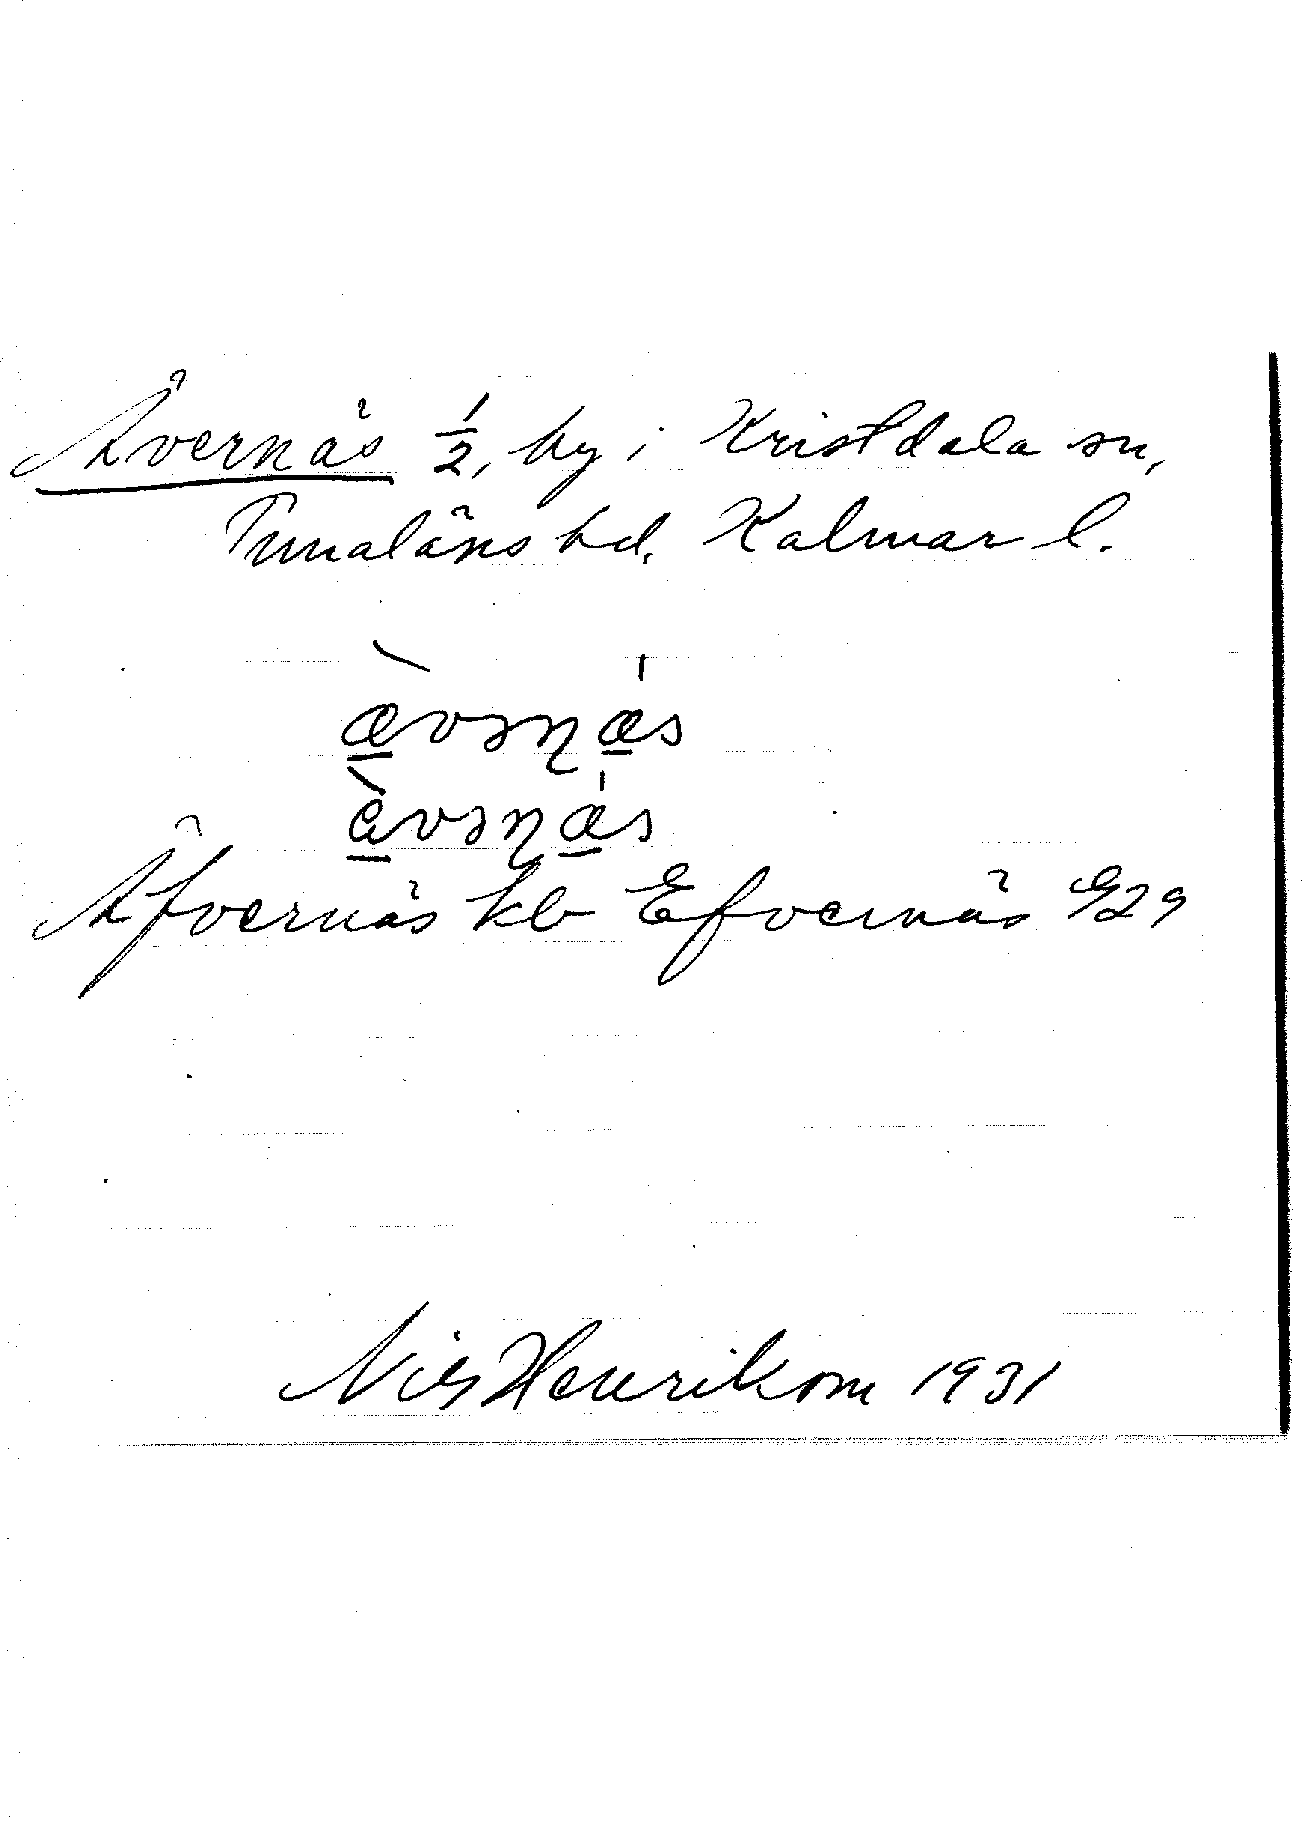 Ävernäs 1/2, by i Kristdala sn,
Tunaläns hd. Kalmar l.
æ̀vənæs
àvənæs
Äfvernäs kb Efvernäs G29
Nils Henrikson 1931